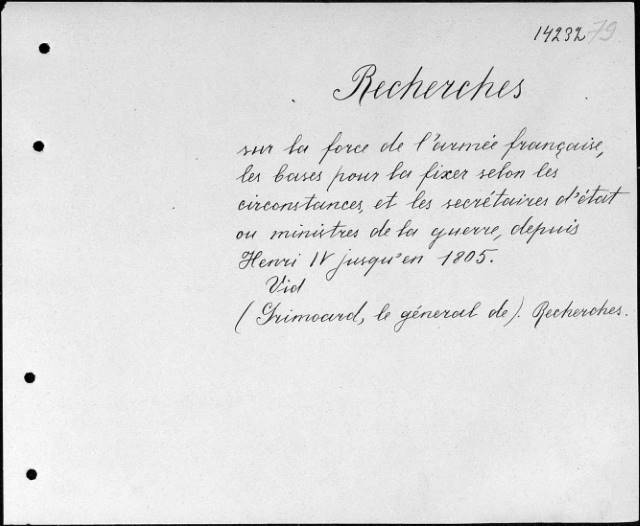 14232 79
Recherches
sur la force de l'armée française,
les bases pour la fixer selon les
circonstances, et les secrétaires d'état
ou ministres de la guerre, depuis
Henri IV jusqu'en 1805.
Vid
(Grimoard, le géneral de). Recherches.